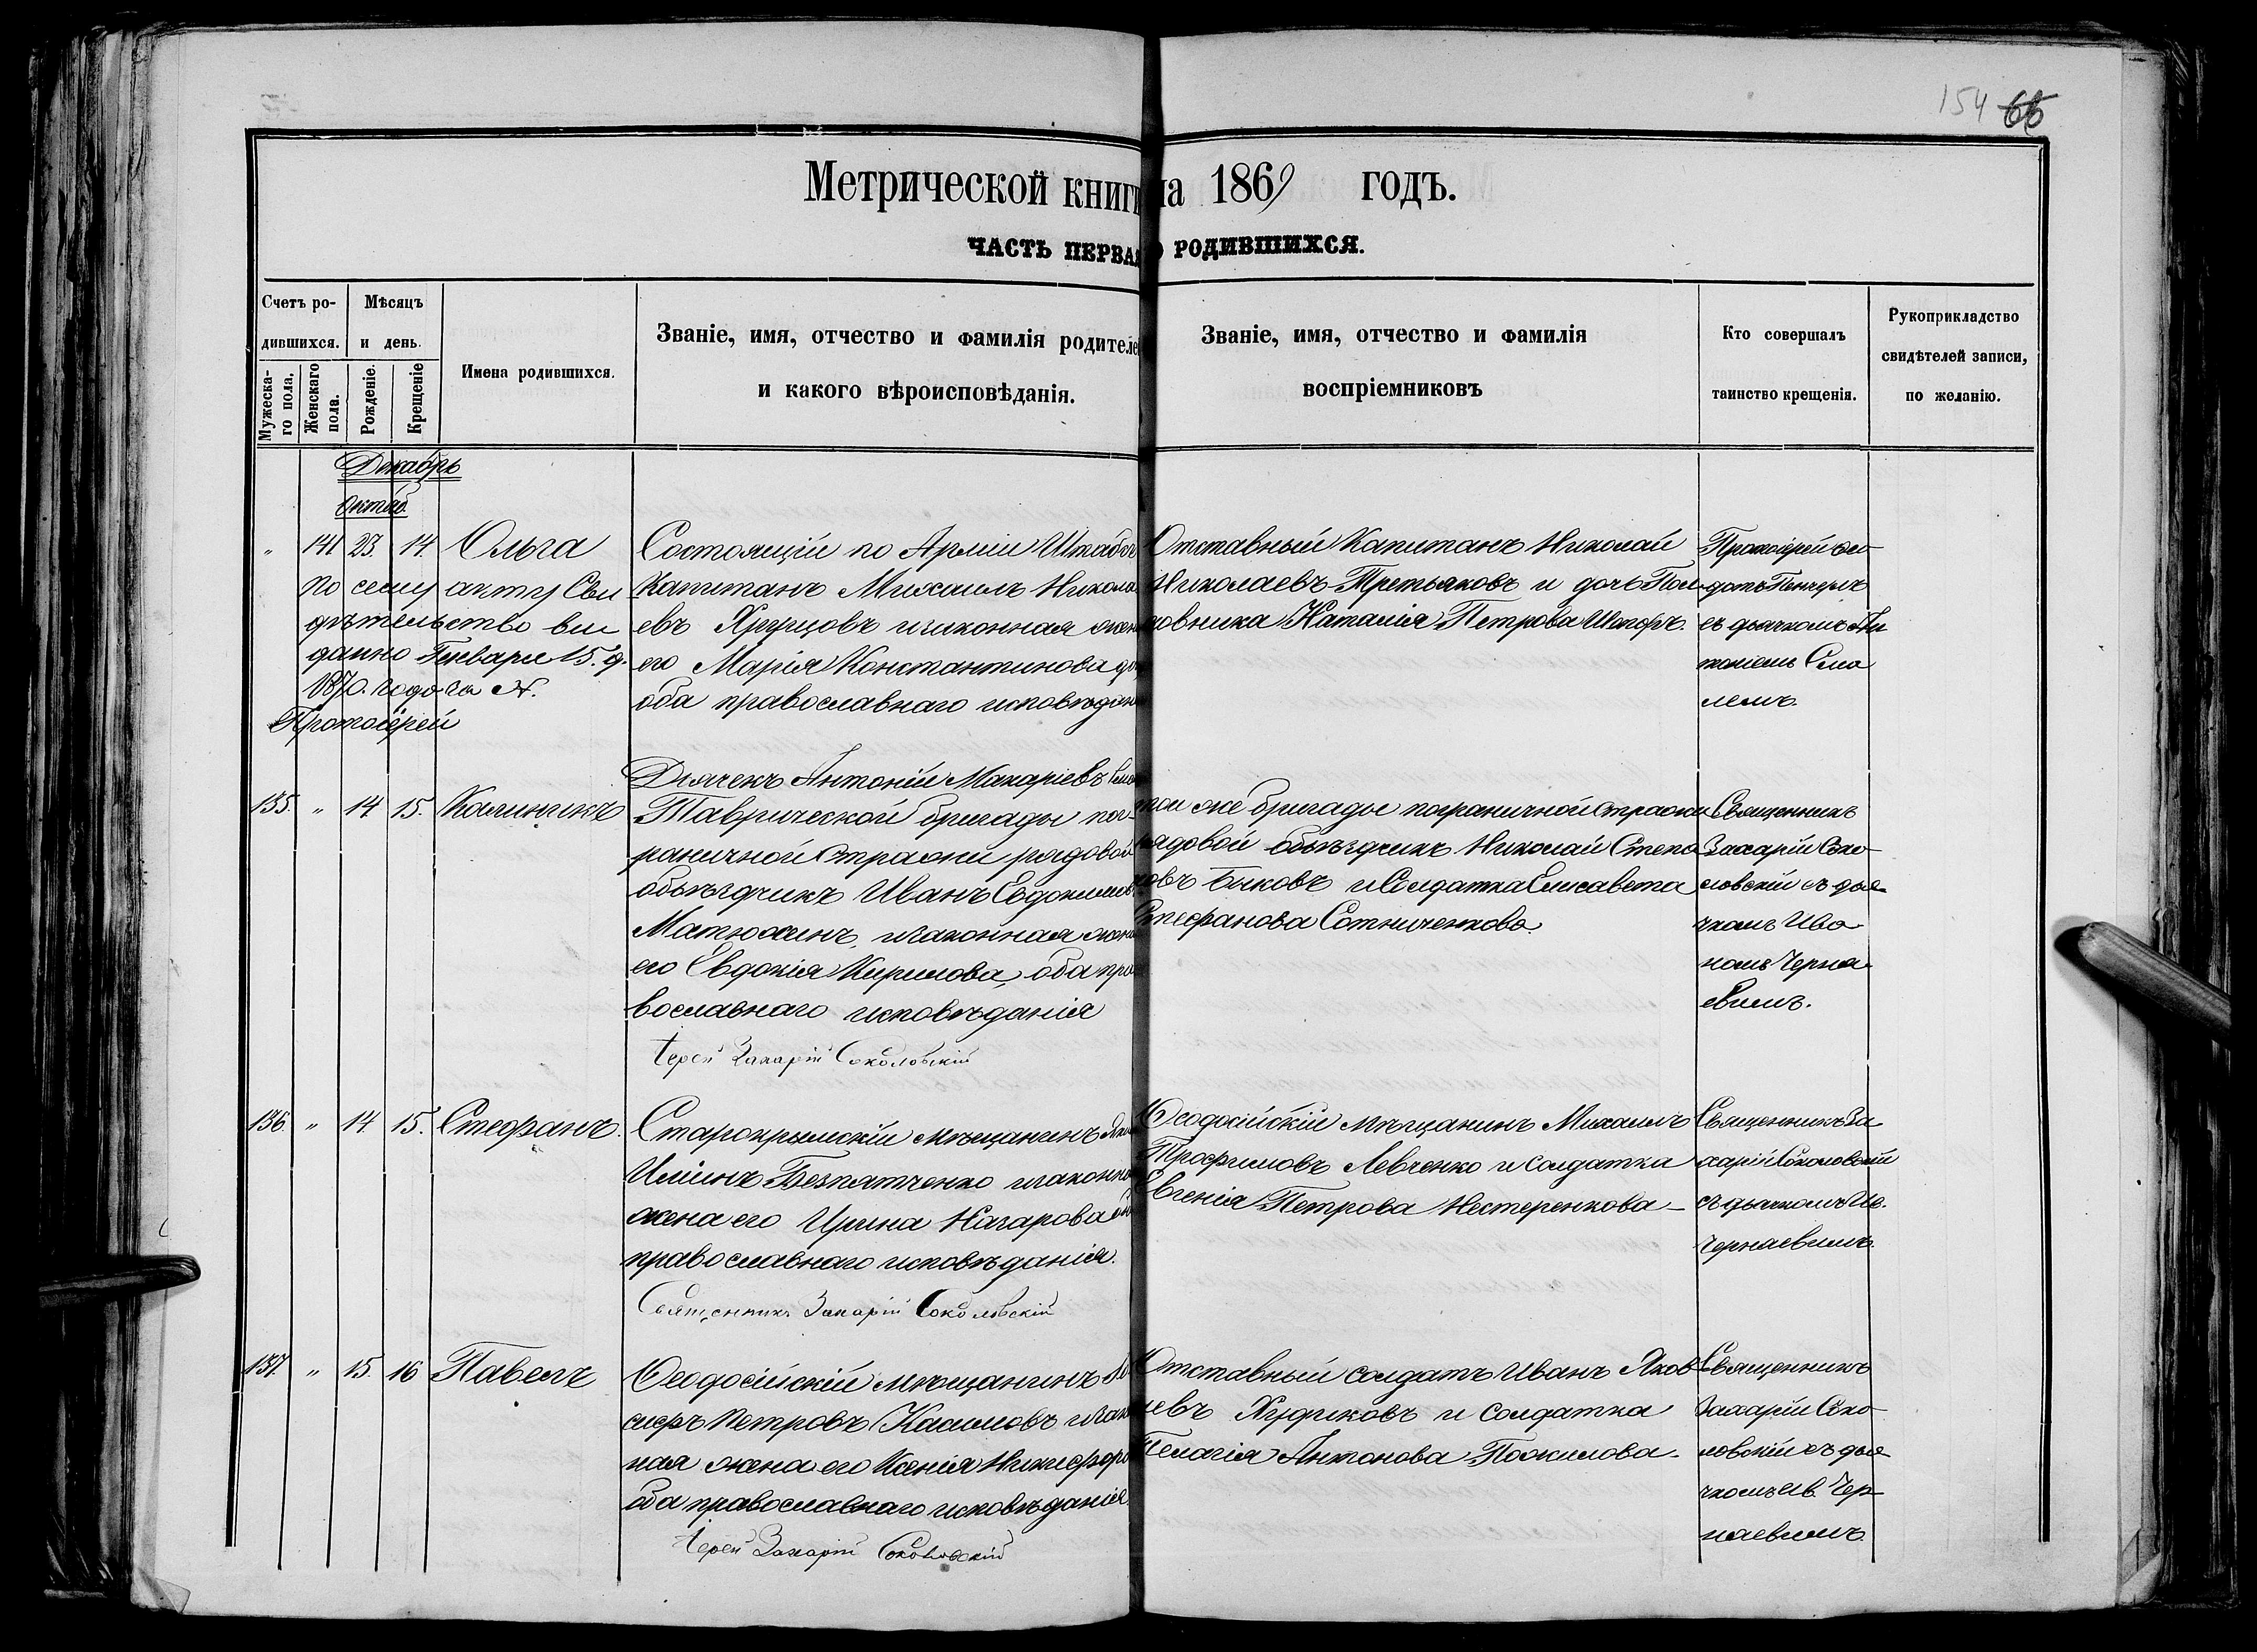 154 66
Метрической книги на 1869 годъ.
ЧАСТЬ ПЕРВАЯ О РОДИВШИХСЯ.
Счетъ родившихся.
Мужескаго пола.
Женскаго пола.
Мѣсяцъ и день.
Рожденіе.
Крещеніе
Имена родившихся.
Званіе, имя, отчество и фамилія родителе
и какого вѣроисповѣданія.
Званіе, имя, отчество и фамилія
воспріемниковъ
Кто совершалъ
таинство крещенія.
Рукоприкладство
свидѣтелей записи,
по желанію.
Декабрь
Октяб.
„ 141 23. 14. Ольга
По сему акту Сви
дѣтельство вы
данно Генваря 15. д.
1870. года за №.
Протоіерей
Состоящій по Арміи Штабсъ
Капитанъ Михаилъ Никола
евъ Хрущовъ и законная жен
его Марія Константинова
оба православнаго исповѣдан
Дьячекъ Антоній Макаріевъ
Отставный Капитанъ Николай
Николаевъ Третьяковъ и дочь Пол
ковника Наталія Петрова
Протоіерей Ѳео
дотъ
съ дьячкомъ Ан
тоніемъ Сма
лемъ.
135. „ 14 15. Калинникъ
Таврической бригады пог
раничной Стражи рядовой
объѣздчикъ Иванъ Евдокимов
Матюхинъ, и законная жена
его Евдокія Кирилова, оба пра
вославнаго исповѣданія
Іерей Захарій Соколовскій
той же бригады пограничной Стражи
рядовой объѣздчикъ Николай Степа
новъ Быковъ и Солдатка Елисавета
Стефанова Сотниченкова.
Священникъ
Захарій Соко
ловскій съ дья
чкомъ Ива
номъ Черня
евымъ.
136. „ 14 15. Стефанъ.
Старокрымскій мѣщанинъ
Иліинъ Безпятченко и законна
жена его Ирина Назарова
православнаго исповѣданія.
Священникъ Захарій Соколовскій
Ѳеодосійскій мѣщанинъ Михаилъ
Трофимовъ Левченко и солдатка
Евгенія Петрова Нестеренкова
Священникъ За
харій Соколовскій
съ дьячкомъ Ив.
Черняевымъ.
137. „ 15. 16 Павелъ
Ѳеодосійскій мѣщанинъ
сифъ Петровъ Касимовъ и закон
ная жена его Ксенія Никифоро
оба православнаго исповѣданія
Іерей Захарій Соколовскій
Отставный солдатъ Иванъ Яков
левъ Худиковъ и солдатка
Пелагія Антонова Пожилова.
Священникъ
Захарій Соко
ловскій съ дья
чкомъ Ив. Чер
няевымъ.